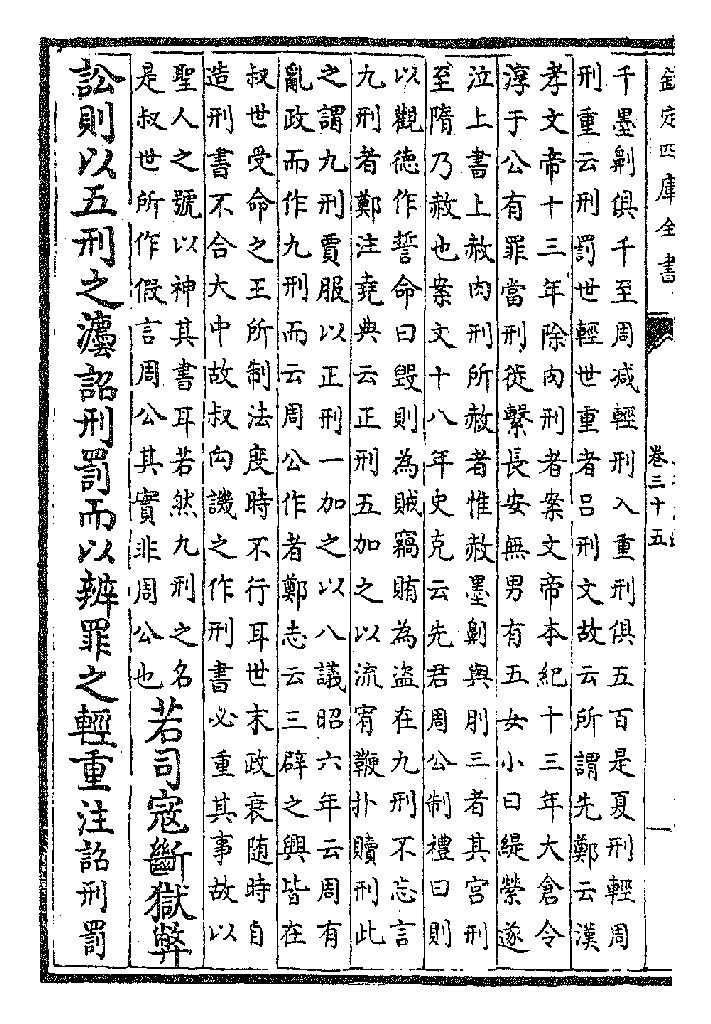 欽定四庫全書
卷三十五
千墨劓俱千至周減輕刑入重刑俱五百是夏刑輕周
刑重云刑罰世輕世重者吕刑文故云所謂先鄭云漢
孝文帝十三年除肉刑者案文帝本紀十三年大倉令
淳于公有罪當刑徙繫長安無男有五女小曰緹縈遂
泣上書上赦肉刑所赦者惟赦墨劓與刖三者其宫刑
至隋乃赦也案文十八年史克云先君周公制禮曰則
以觀德作誓命曰毁則為賊竊賄為盗在九刑不忘言
九刑者鄭注堯典云正刑五加之以流宥鞭扑贖刑此
之謂九刑賈服以正刑一加之以八議昭六年云周有
亂政而作九刑而云周公作者鄭志云三辟之興皆在
叔世受命之王所制法度時不行耳世末政衰随時自
造刑書不合大中故叔向譏之作刑書必重其事故以
聖人之號以神其書耳若然九刑之名
是叔世所作假言周公其實非周公也
若司寇斷獄弊
訟則以五刑之灋詔刑罰而以辨罪之輕重注詔刑罰